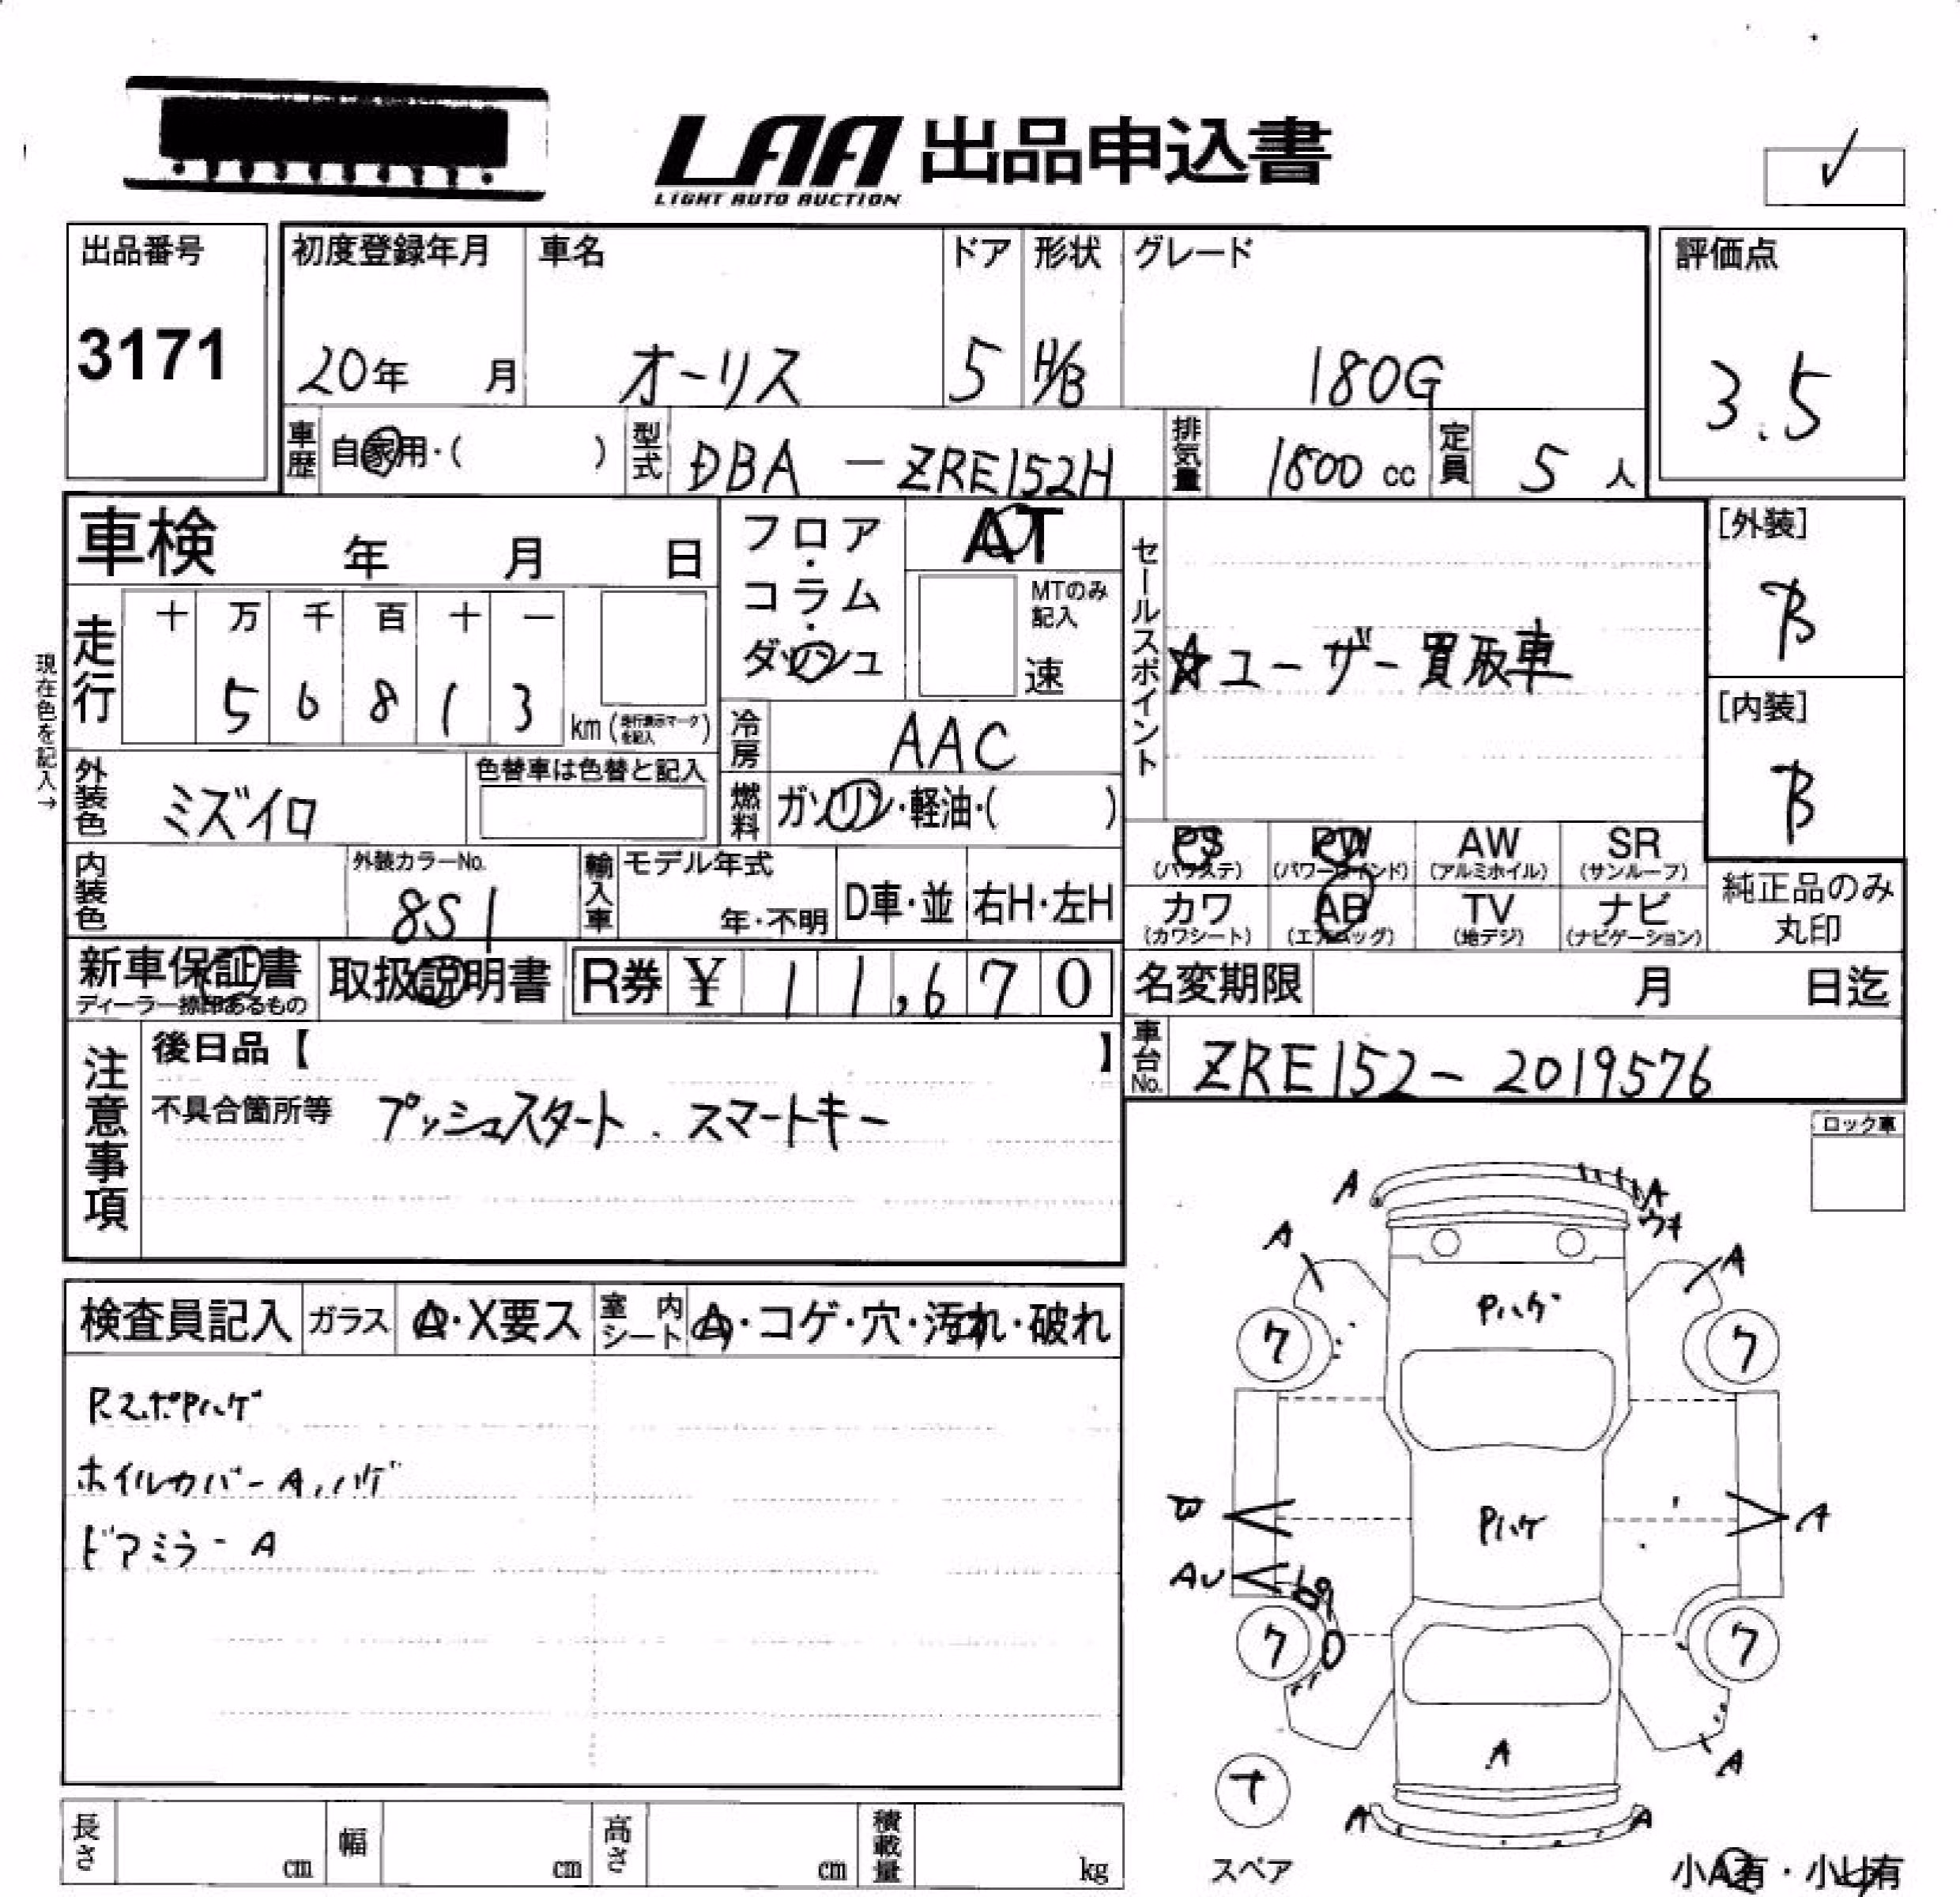 LAA 出品申込書
LIGHT AUTO AUCTION
出品番号
3171
初度登録年月
20年 月
車名
オーリス
ドア
5
形状
H/B
グレード
180G
評価点
3.5
車歴 自家用・( )
型式 DBA - ZRE152H
排気量 1800 cc
定員 5 人
車検 年 月 日
フロア・コラム・ダッシュ
AT
MTのみ記入
速
セールスポイント
☆ユーザー買取車
[外装]
B
[内装]
B
現在色を記入→
走行
十 万 千 百 十 一
5 6 8 1 3
km (走行表示マークを記入)
冷房 AAC
外装色 ミズイロ
色替車は色替と記入
燃料 ガソリン・軽油・( )
PS (パワステ)
PW (パワーウインド)
AW (アルミホイル)
SR (サンルーフ)
カワ (カワシート)
AB (エアバッグ)
TV (地デジ)
ナビ (ナビゲーション)
純正品のみ丸印
内装色
外装カラーNo.
8S1
輸入車
モデル年式
年・不明
D車・並
右H・左H
新車保証書
ディーラー捺印あるもの
取扱説明書
R券 ¥ 11,670
名変期限 月 日迄
車台No. ZRE152- 2019576
注意事項
後日品【 】
不具合箇所等 プッシュスタート . スマートキー
ロック車
検査員記入
ガラス A・X要ス
室内シート A・コゲ・穴・汚れ・破れ
RスポPハゲ
ホイルカバーA,ハゲ
ドアミラーA
A
A
ウキ
A
A
Pハゲ
ク
ク
Pハゲ
A
AU
ク
ク
A
A
A
A
スペア
長さ cm
幅 cm
高さ cm
積載量 kg
小A有・小U有